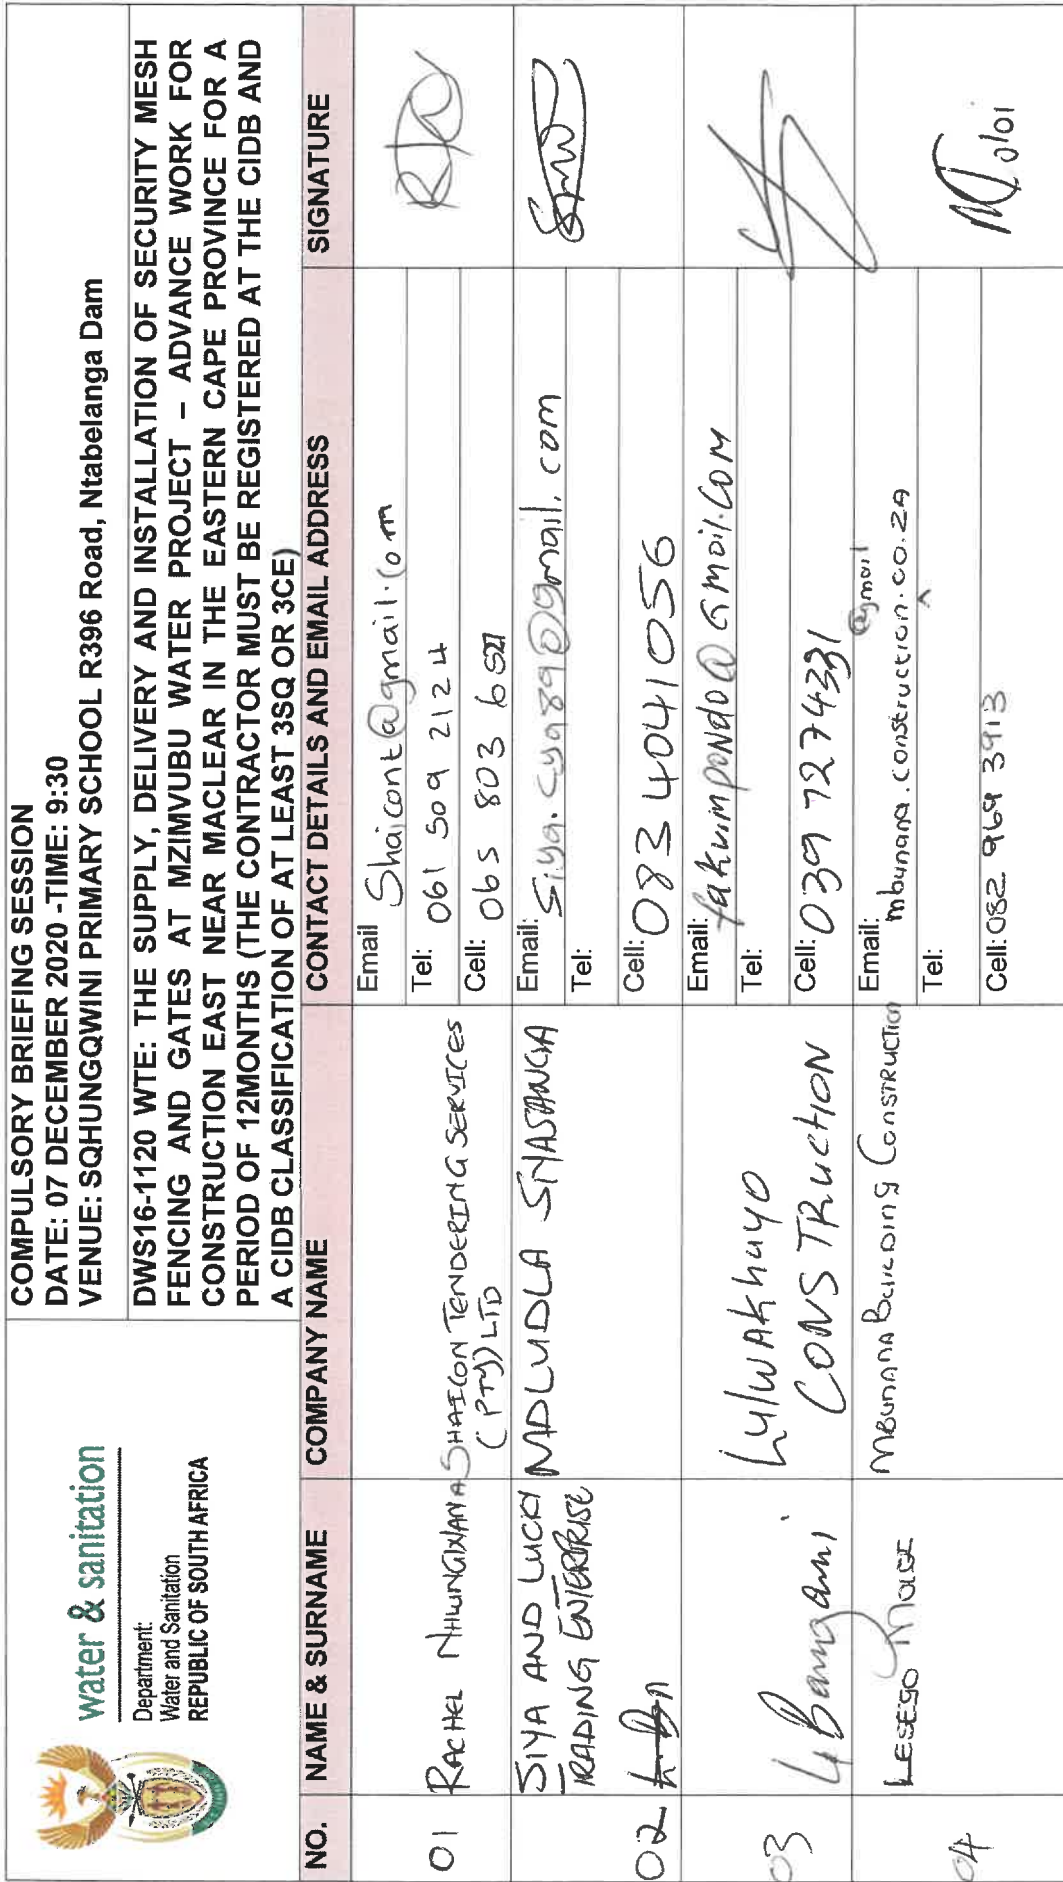 water & sanitation
Department:
Water and Sanitation
REPUBLIC OF SOUTH AFRICA
COMPULSORY BRIEFING SESSION
DATE: 07 DECEMBER 2020 -TIME: 9:30
VENUE: SQHUNGQWINI PRIMARY SCHOOL R396 Road, Ntabelanga Dam
DWS16-1120 WTE: THE SUPPLY, DELIVERY AND INSTALLATION OF SECURITY MESH
FENCING AND GATES AT MZIMVUBU WATER PROJECT – ADVANCE WORK FOR
CONSTRUCTION EAST NEAR MACLEAR IN THE EASTERN CAPE PROVINCE FOR A
PERIOD OF 12MONTHS (THE CONTRACTOR MUST BE REGISTERED AT THE CIDB AND
A CIDB CLASSIFICATION OF AT LEAST 3SQ OR 3CE)
NO. NAME & SURNAME COMPANY NAME CONTACT DETAILS AND EMAIL ADDRESS SIGNATURE
01 RACHEL SHAICON TENDERING SERVICES
(PTY) LTD
Email Shaicont@gmail.com
Tel: 061 509 2124
Cell: 065 803 6
SIYA AND LUCKY
TRADING ENTERPRISE
02
MDLUDLA SIYASANGA
Email: Siya.cya89@gmail.com
Tel:
Cell: 083 4041056
03 Bangani
Lulwakhuyo
CONSTRuctION
Email: fakuimpondo@Gmail.com
Tel:
Cell: 039 7274331
04 LESEGO
MBUNANA BUILDING CONSTRUCTION
@gmail
Email: mbunana.construction.co.za
Tel:
Cell: 082 969 3913
MToloi